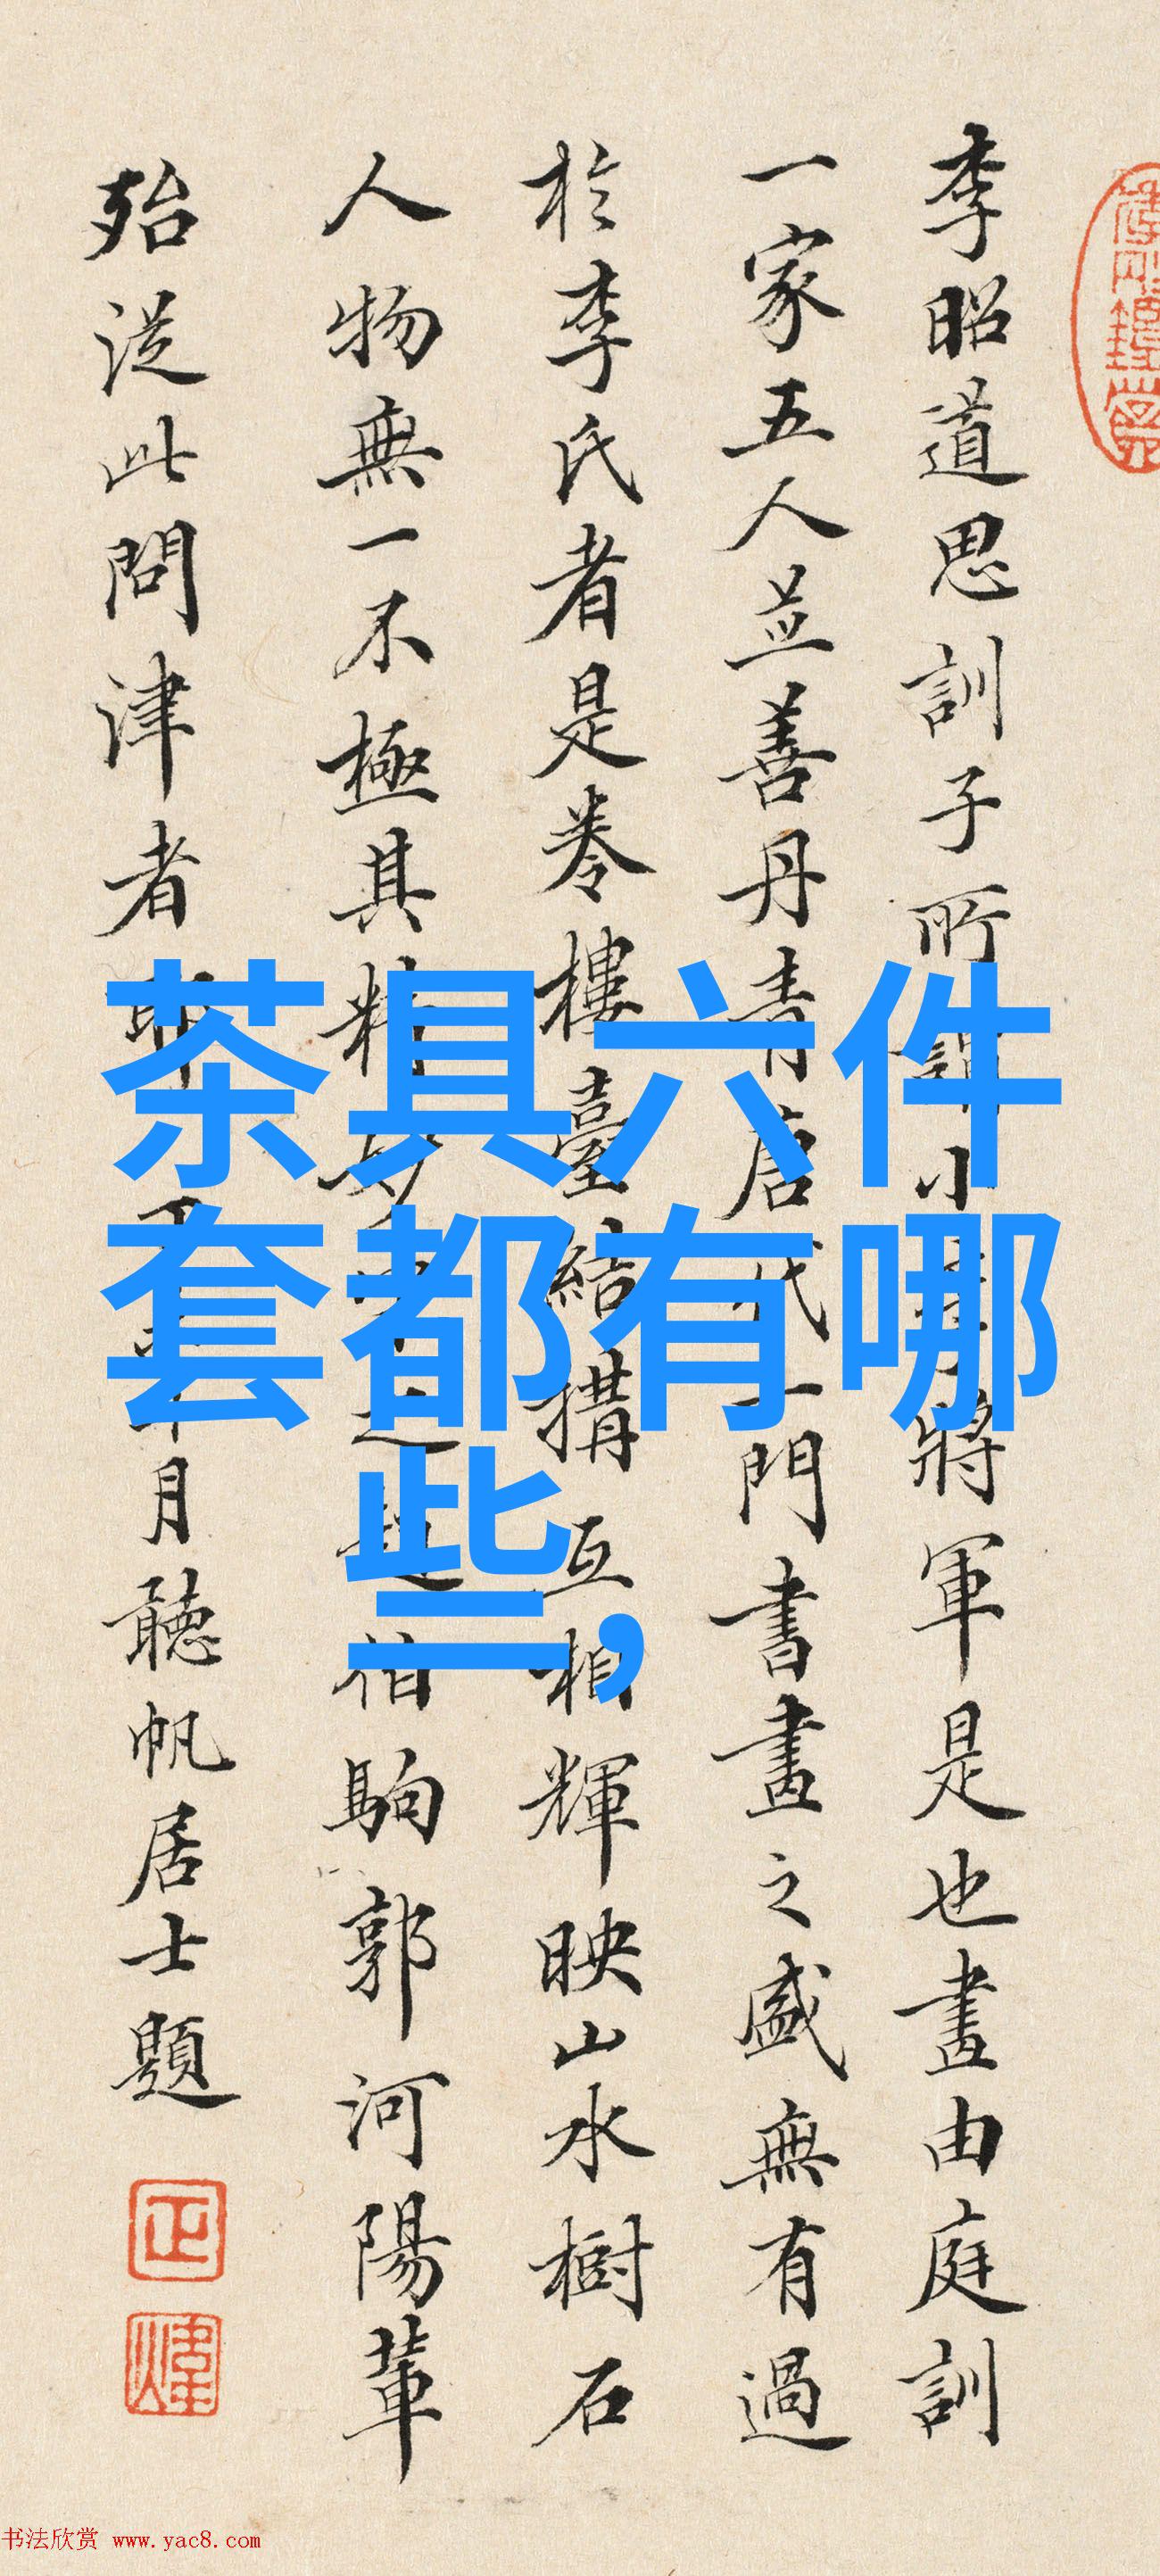 李昭道思訓子所謂小李將軍是也畫由庭訓
一家五人並善丹青唐代一門書畫之盛無有過
於李氏者是卷樓臺結搆互相輝映山水樹石
人物無一不極其精妙 伯駒郭河陽輩
殆從此問津者耶 月聽帆居士題
正
煒
茶具六件
套都有哪
些,
书法欣赏 www.yac8.com